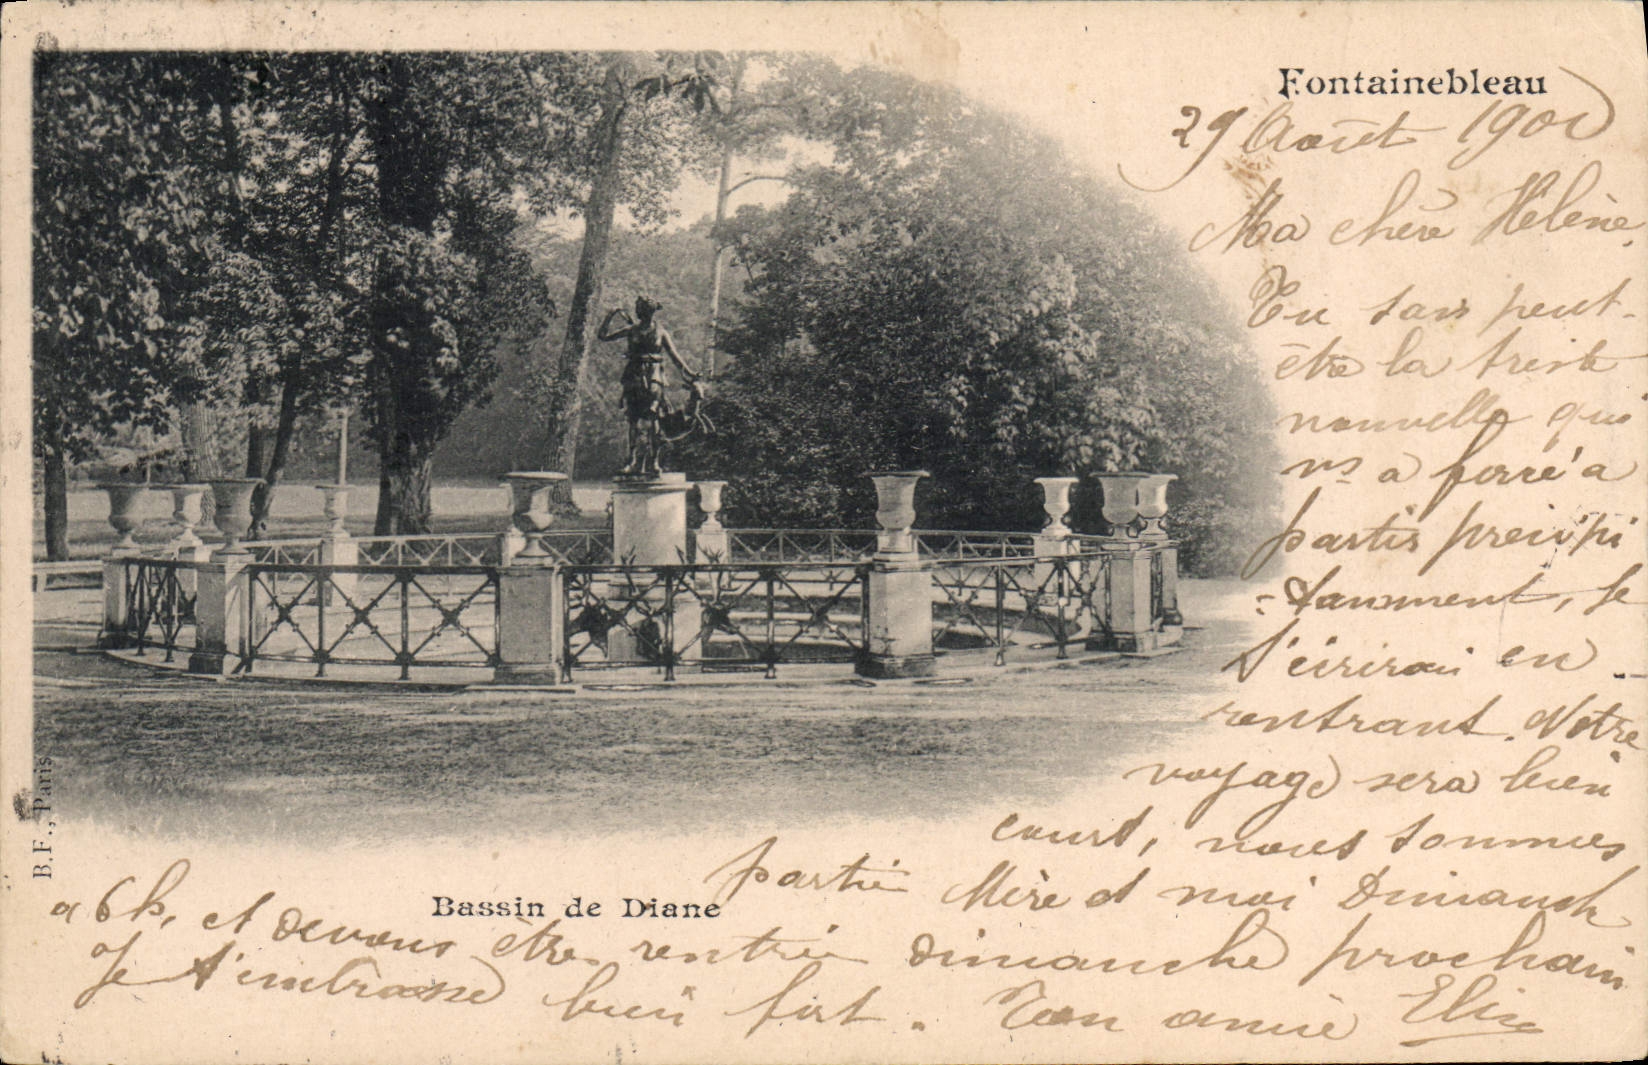 Fontainebleau
29 Août 1901
Ma chère Hélène,
Tu sais peut-
être la triste
nouvelle qui
ns a forcé a
partir précipi
-tamment, je
t'écrirai en
rentrant. Notre
voyage sera bien
court, nous sommes
partie Mère et moi Dimanch
a 6h, et devons être rentrée dimanche prochain
Je t'embrasse bien fort. Ton amie Elise
Bassin de Diane
B.F., Paris